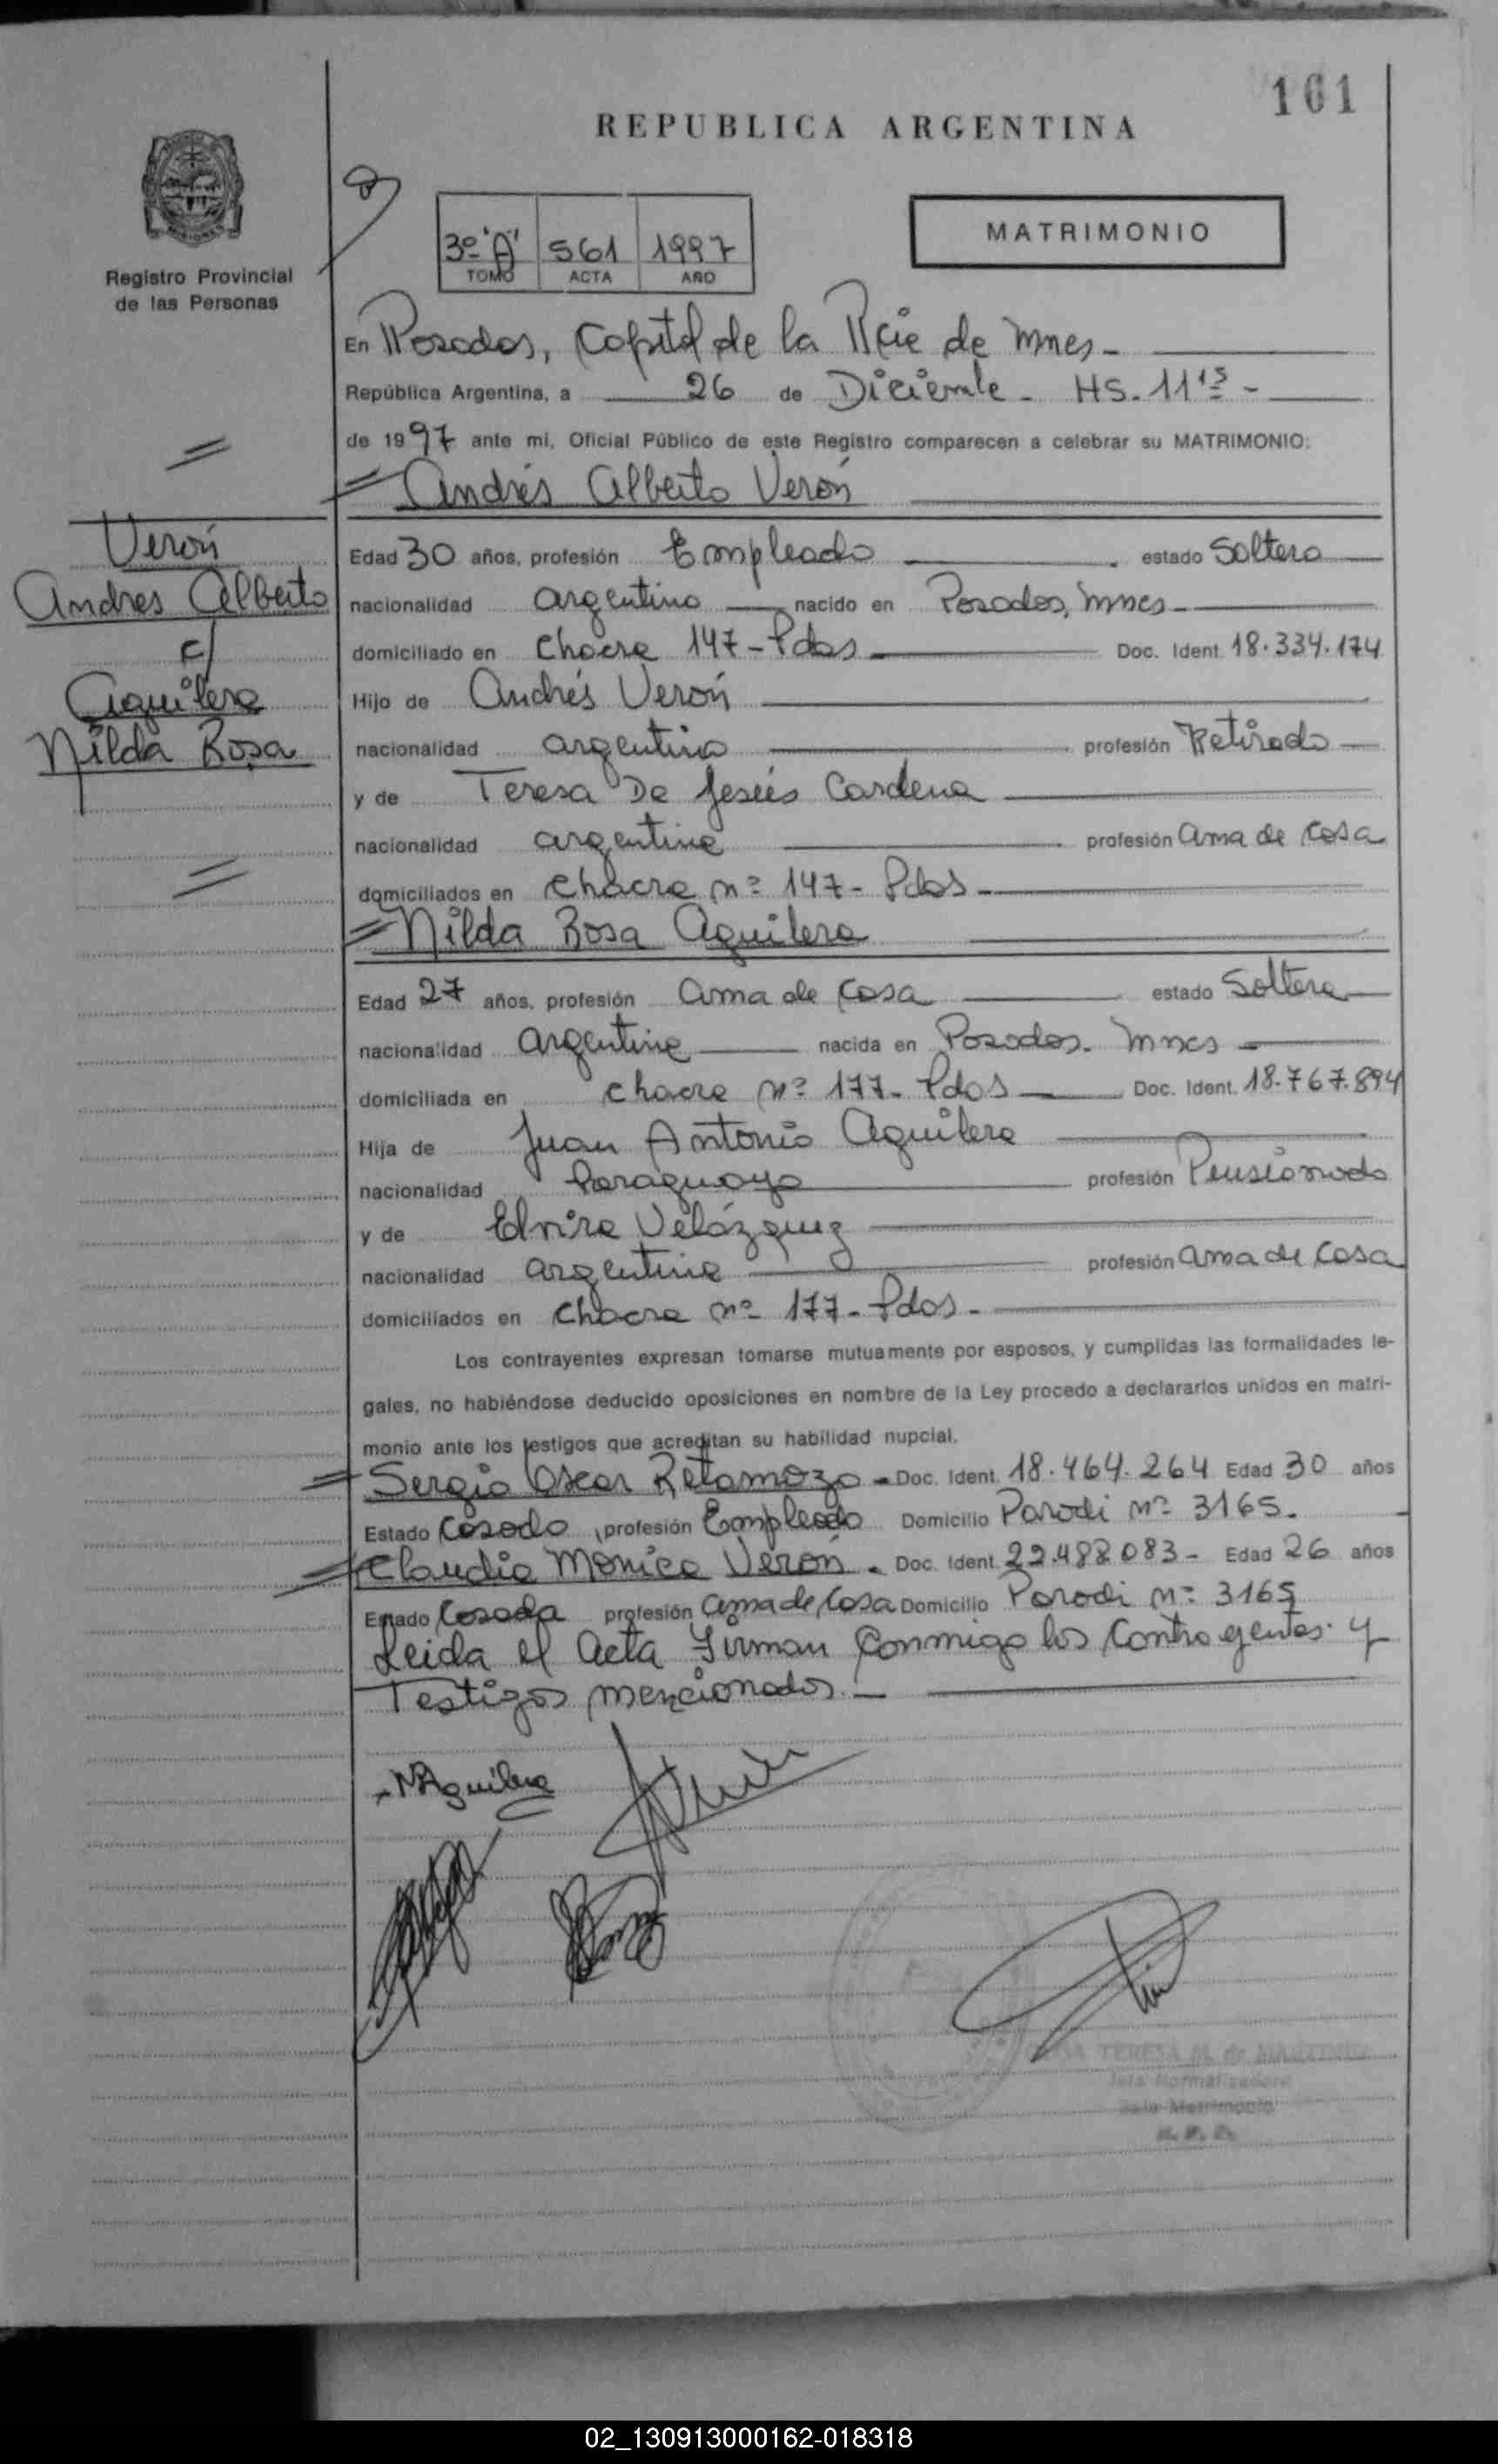 161
REPUBLICA ARGENTINA
MATRIMONIO
Registro Provincial
de las Personas
3º "A" 561 1997
TOMO ACTA AÑO
En Posadas, Capital de la Pcie de Mnes-
República Argentina, a 26 de Diciembre - HS. 11¹⁵-
de 1997 ante mí, Oficial Público de este Registro comparecen a celebrar su MATRIMONIO:
Andrés Alberto Verón
Verón
Andres Alberto
c/
Aguilera
Nilda Rosa
Edad 30 años, profesión Empleado estado Soltero
nacionalidad argentino nacido en Posadas, Mnes-
domiciliado en Chacra 147-Pdas Doc. Ident. 18.334.174
Hijo de Andrés Verón
nacionalidad argentino profesión Retirado
y de Teresa De Jesús Cardena
nacionalidad argentina profesión Ama de Casa
domiciliados en Chacra nº 147- Pdas-
Nilda Rosa Aguilera
Edad 27 años, profesión Ama de Casa estado Soltera
nacionalidad Argentina nacida en Posadas- Mnes
domiciliada en Chacra Nº 177- Pdas Doc. Ident. 18.767.894
Hija de Juan Antonio Aguilera
nacionalidad Paraguayo profesión Pensionado
y de Elvira Velázquez
nacionalidad argentina profesión Ama de Casa
domiciliados en Chacra nº 177- Pdas-
Los contrayentes expresan tomarse mutuamente por esposos, y cumplidas las formalidades le-
gales, no habiéndose deducido oposiciones en nombre de la Ley procedo a declararlos unidos en matri-
monio ante los testigos que acreditan su habilidad nupcial.
Sergio Oscar Retamozo - Doc. Ident. 18.464.264 Edad 30 años
Estado Casado, profesión Empleado Domicilio Parodi nº 3165.
Claudia Monica Verón. Doc. Ident. 22.488.083- Edad 26 años
Estado Casada profesión Ama de Casa Domicilio Parodi nº 3165
Leida el Acta Firman Conmigo los Contrayentes y
Testigos mencionados.-
NAguilera
TERESA M. de MARTINEZ
Jefa Normalizadora
Sala Matrimonio
R. P. P.
02_130913000162-018318